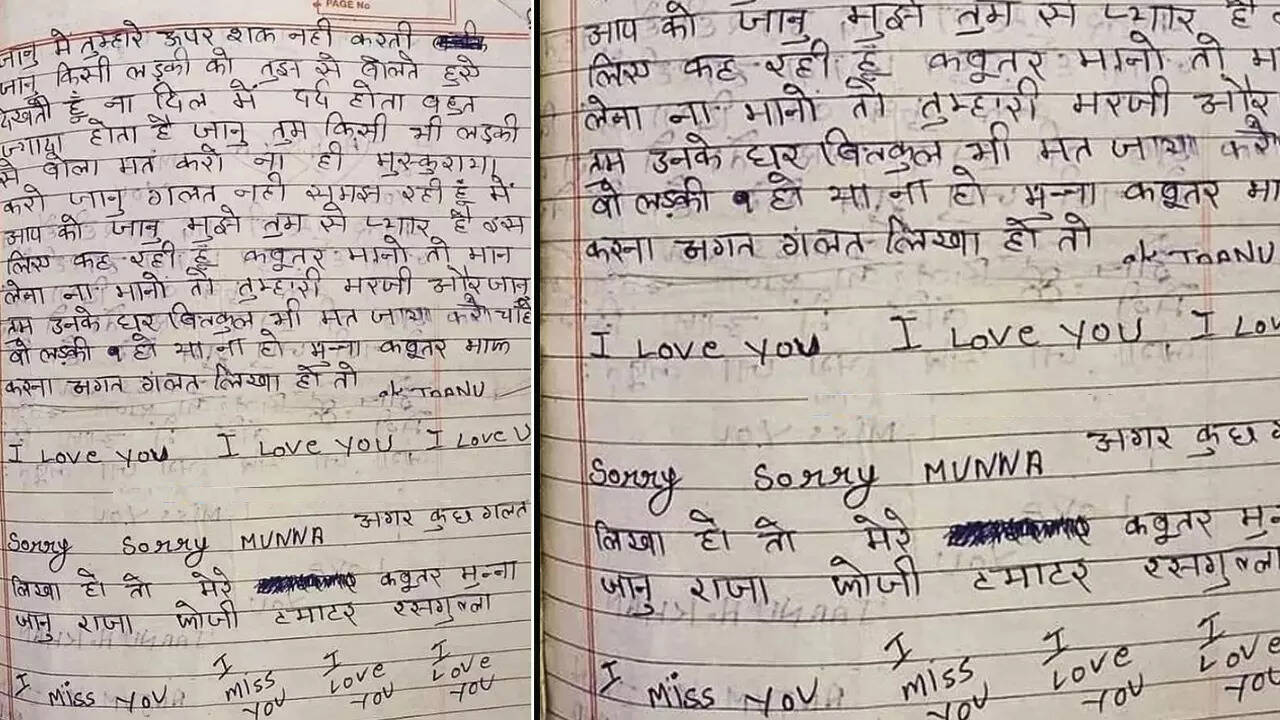 PAGE No
जानु मे तुम्हारे ऊपर शक नही करती
जानु किसी लड़की को तुझ से बोलते हुऐ
देखती हूँ ना दिल में दर्द होता बहुत
ज्यादा होता है जानु तुम किसी भी लड़की
से बोला मत करो ना ही मुस्कुराया
करो जानु गलत नही समझ रही हूँ में
आप को जानु मुझे तुम से प्यार है इस
लिए कह रही हूँ कबूतर मानो तो मान
लेना ना मानो तो तुम्हारी मरजी और जानु
तुम उनके घर बिलकुल भी मत जाया करो चाहे
वो लड़की हो या ना हो मुन्ना कबूतर माफ
करना अगत गलत लिखा हो तो
I Love you I Love you, I Love U
अगर कुछ गलत
Sorry Sorry MUNNA
लिखा हो तो मेरे कबूतर मुन्ना
जानु राजा टमाटर रसगुल्ला
I miss you I miss you I Love you I Love you
आप को जानु मुझे तुम से प्यार है
लिए कह रही हूँ कबूतर मानो तो म
लेना ना मानो तो तुम्हारी मरजी और
तुम उनके घर बिलकुल भी मत जाया करो
वो लड़की हो या ना हो मुन्ना कबूतर मा
करना अगत गलत लिखा हो तो
I Love you I Love you, I Lov
अगर कुछ ग
Sorry Sorry MUNNA
लिखा हो तो मेरे कबूतर मु
जानु राजा टमाटर रसगुल्ला
I miss you I miss you I Love you I Love you